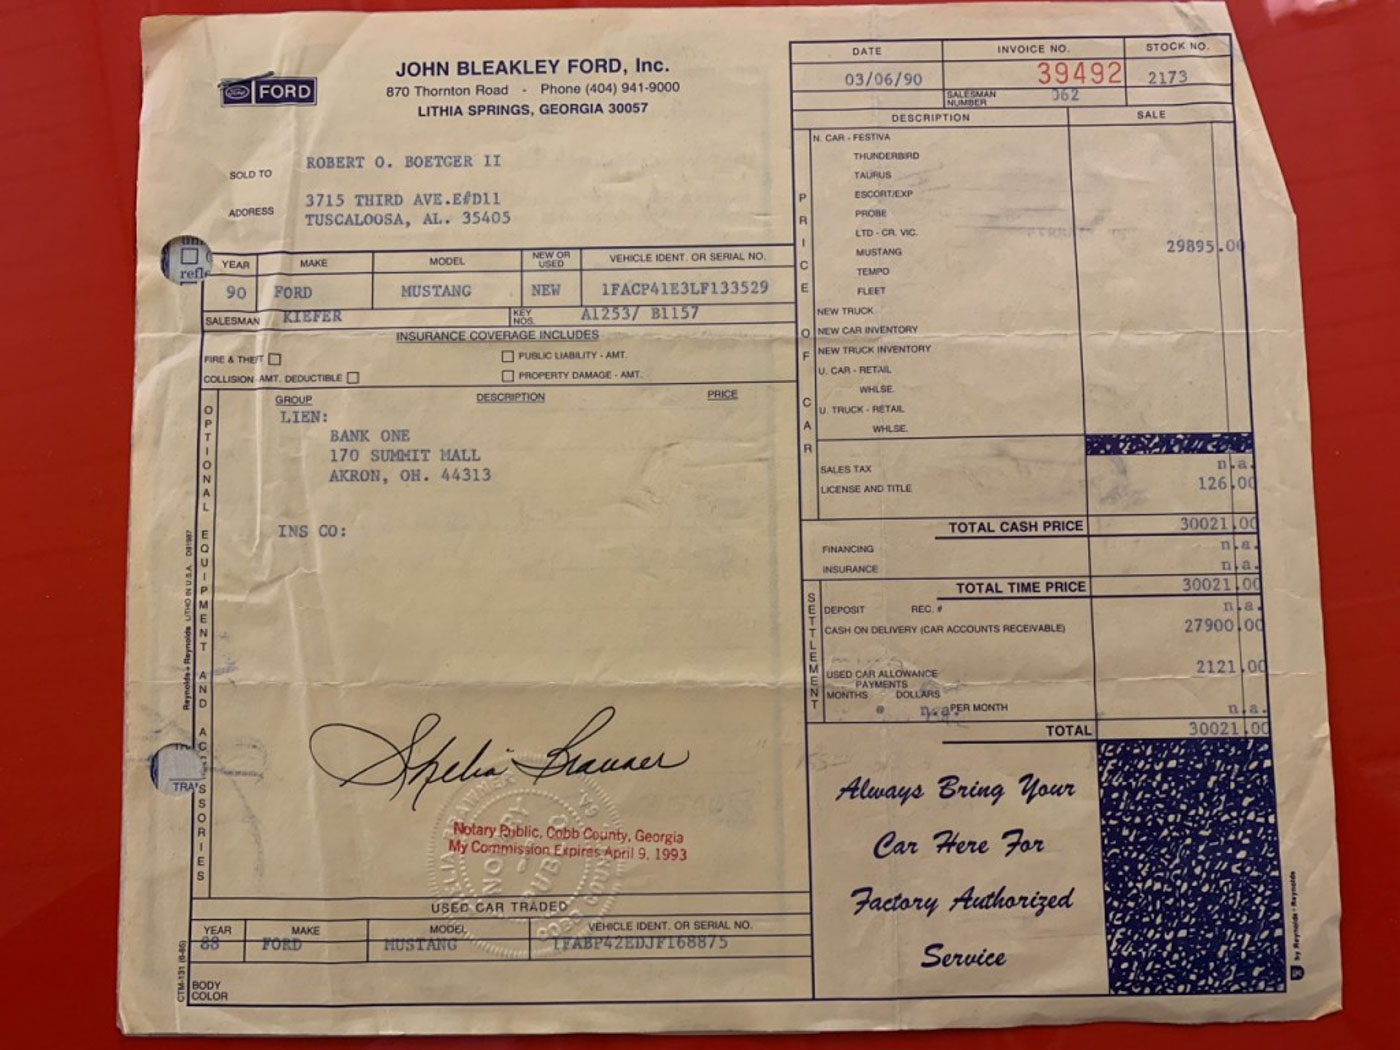 Ford FORD
JOHN BLEAKLEY FORD, Inc.
870 Thornton Road - Phone (404) 941-9000
LITHIA SPRINGS, GEORGIA 30057
DATE INVOICE NO. STOCK NO.
03/06/90 39492 2173
SALESMAN NUMBER 062
SOLD TO ROBERT O. BOETGER II
ADDRESS 3715 THIRD AVE.E#D11
TUSCALOOSA, AL. 35405
YEAR MAKE MODEL NEW OR USED VEHICLE IDENT. OR SERIAL NO.
90 FORD MUSTANG NEW 1FACP41E3LF133529
SALESMAN KIEFER KEY NOS. A1253/ B1157
INSURANCE COVERAGE INCLUDES
FIRE & THEFT PUBLIC LIABILITY - AMT.
COLLISION AMT. DEDUCTIBLE PROPERTY DAMAGE - AMT.
OPTIONAL EQUIPMENT AND ACCESSORIES
GROUP DESCRIPTION PRICE
LIEN:
BANK ONE
170 SUMMIT MALL
AKRON, OH. 44313
INS CO:
Shelia Brawner
Notary Public, Cobb County, Georgia
My Commission Expires April 9, 1993
NOTARY PUBLIC
USED CAR TRADED
YEAR MAKE MODEL VEHICLE IDENT. OR SERIAL NO.
88 FORD MUSTANG 1FABP42EDJF168875
BODY COLOR
CTM-131 (6-85)
Reynolds + Reynolds LITHO IN U.S.A. D91987
refle
TRA
DESCRIPTION SALE
PRICE OF CAR
N. CAR - FESTIVA
THUNDERBIRD
TAURUS
ESCORT/EXP
PROBE
LTD - CR. VIC.
MUSTANG 29895.00
TEMPO
FLEET
NEW TRUCK
NEW CAR INVENTORY
NEW TRUCK INVENTORY
U. CAR - RETAIL
WHLSE.
U. TRUCK - RETAIL
WHLSE.
SALES TAX n.a.
LICENSE AND TITLE 126.00
TOTAL CASH PRICE 30021.00
FINANCING n.a.
INSURANCE n.a.
TOTAL TIME PRICE 30021.00
SETTLEMENT
DEPOSIT REC. # n.a.
CASH ON DELIVERY (CAR ACCOUNTS RECEIVABLE) 27900.00
USED CAR ALLOWANCE 2121.00
PAYMENTS
MONTHS DOLLARS
@ n.a. PER MONTH n.a.
TOTAL 30021.00
Always Bring Your
Car Here For
Factory Authorized
Service
by Reynolds + Reynolds